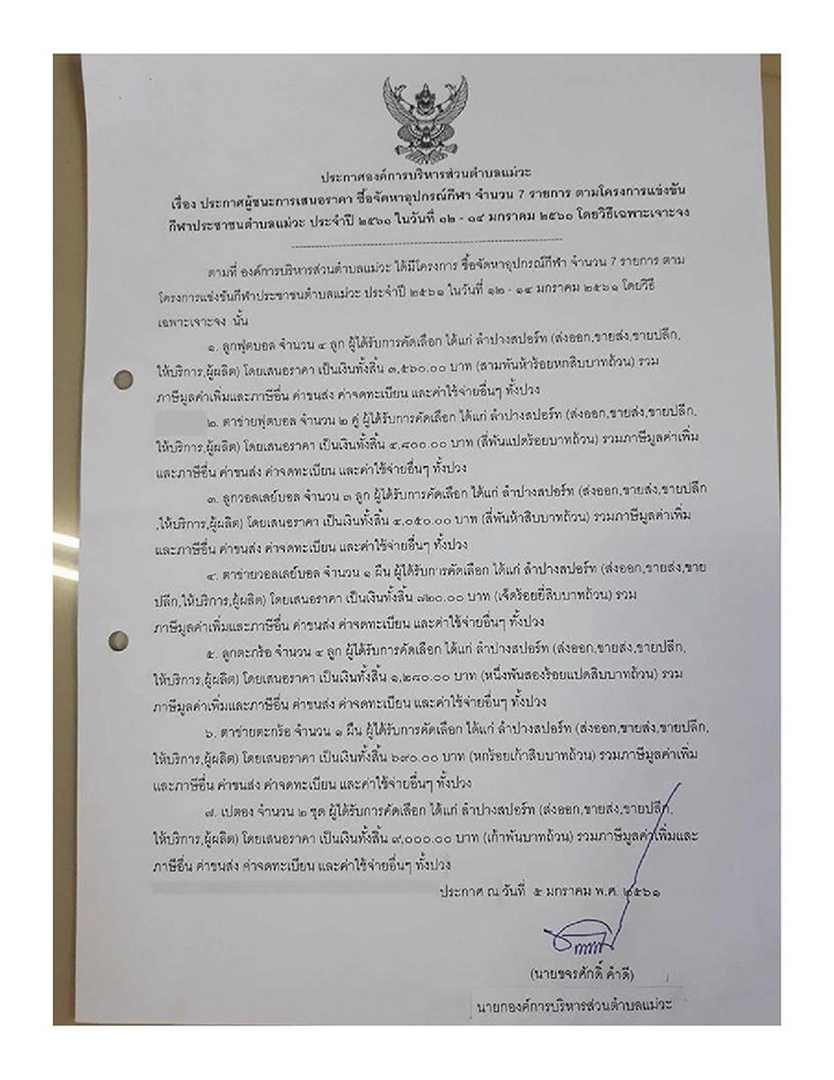 ประกาศองค์การบริหารส่วนตำบลแม่วะ
เรื่อง ประกาศผู้ชนะการเสนอราคา ซื้อจัดหาอุปกรณ์กีฬา จำนวน 7 รายการ ตามโครงการแข่งขัน
กีฬาประชาชนตำบลแม่วะ ประจำปี ๒๕๖๑ ในวันที่ ๑๒ - ๑๔ มกราคม ๒๕๖๑ โดยวิธีเฉพาะเจาะจง
ตามที่ องค์การบริหารส่วนตำบลแม่วะ ได้มีโครงการ ซื้อจัดหาอุปกรณ์กีฬา จำนวน 7 รายการ ตาม
โครงการแข่งขันกีฬาประชาชนตำบลแม่วะ ประจำปี ๒๕๖๑ ในวันที่ ๑๒ - ๑๔ มกราคม ๒๕๖๑ โดยวิธี
เฉพาะเจาะจง นั้น
๑. ลูกฟุตบอล จำนวน ๔ ลูก ผู้ได้รับการคัดเลือก ได้แก่ ลำปางสปอร์ท (ส่งออก,ขายส่ง,ขายปลีก,
ให้บริการ,ผู้ผลิต) โดยเสนอราคา เป็นเงินทั้งสิ้น ๓,๕๖๐.๐๐ บาท (สามพันห้าร้อยหกสิบบาทถ้วน) รวม
ภาษีมูลค่าเพิ่มและภาษีอื่น ค่าขนส่ง ค่าจดทะเบียน และค่าใช้จ่ายอื่นๆ ทั้งปวง
๒. ตาข่ายฟุตบอล จำนวน ๒ คู่ ผู้ได้รับการคัดเลือก ได้แก่ ลำปางสปอร์ท (ส่งออก,ขายส่ง,ขายปลีก,
ให้บริการ,ผู้ผลิต) โดยเสนอราคา เป็นเงินทั้งสิ้น ๔,๘๐๐.๐๐ บาท (สี่พันแปดร้อยบาทถ้วน) รวมภาษีมูลค่าเพิ่ม
และภาษีอื่น ค่าขนส่ง ค่าจดทะเบียน และค่าใช้จ่ายอื่นๆ ทั้งปวง
๓. ลูกวอลเลย์บอล จำนวน ๓ ลูก ผู้ได้รับการคัดเลือก ได้แก่ ลำปางสปอร์ท (ส่งออก,ขายส่ง,ขายปลีก
,ให้บริการ,ผู้ผลิต) โดยเสนอราคา เป็นเงินทั้งสิ้น ๔,๐๕๐.๐๐ บาท (สี่พันห้าสิบบาทถ้วน) รวมภาษีมูลค่าเพิ่ม
และภาษีอื่น ค่าขนส่ง ค่าจดทะเบียน และค่าใช้จ่ายอื่นๆ ทั้งปวง
๔. ตาข่ายวอลเลย์บอล จำนวน ๑ ผืน ผู้ได้รับการคัดเลือก ได้แก่ ลำปางสปอร์ท (ส่งออก,ขายส่ง,ขาย
ปลีก,ให้บริการ,ผู้ผลิต) โดยเสนอราคา เป็นเงินทั้งสิ้น ๗๒๐.๐๐ บาท (เจ็ดร้อยยี่สิบบาทถ้วน) รวม
ภาษีมูลค่าเพิ่มและภาษีอื่น ค่าขนส่ง ค่าจดทะเบียน และค่าใช้จ่ายอื่นๆ ทั้งปวง
๕. ลูกตะกร้อ จำนวน ๔ ลูก ผู้ได้รับการคัดเลือก ได้แก่ ลำปางสปอร์ท (ส่งออก,ขายส่ง,ขายปลีก,
ให้บริการ,ผู้ผลิต) โดยเสนอราคา เป็นเงินทั้งสิ้น ๑,๒๘๐.๐๐ บาท (หนึ่งพันสองร้อยแปดสิบบาทถ้วน) รวม
ภาษีมูลค่าเพิ่มและภาษีอื่น ค่าขนส่ง ค่าจดทะเบียน และค่าใช้จ่ายอื่นๆ ทั้งปวง
๖. ตาข่ายตะกร้อ จำนวน ๑ ผืน ผู้ได้รับการคัดเลือก ได้แก่ ลำปางสปอร์ท (ส่งออก,ขายส่ง,ขายปลีก,
ให้บริการ,ผู้ผลิต) โดยเสนอราคา เป็นเงินทั้งสิ้น ๖๙๐.๐๐ บาท (หกร้อยเก้าสิบบาทถ้วน) รวมภาษีมูลค่าเพิ่ม
และภาษีอื่น ค่าขนส่ง ค่าจดทะเบียน และค่าใช้จ่ายอื่นๆ ทั้งปวง
๗. เปตอง จำนวน ๒ ชุด ผู้ได้รับการคัดเลือก ได้แก่ ลำปางสปอร์ท (ส่งออก,ขายส่ง,ขายปลีก,
ให้บริการ,ผู้ผลิต) โดยเสนอราคา เป็นเงินทั้งสิ้น ๙,๐๐๐.๐๐ บาท (เก้าพันบาทถ้วน) รวมภาษีมูลค่าเพิ่มและ
ภาษีอื่น ค่าขนส่ง ค่าจดทะเบียน และค่าใช้จ่ายอื่นๆ ทั้งปวง
ประกาศ ณ วันที่ ๕ มกราคม พ.ศ. ๒๕๖๑
(นายขจรศักดิ์ คำดี)
นายกองค์การบริหารส่วนตำบลแม่วะ